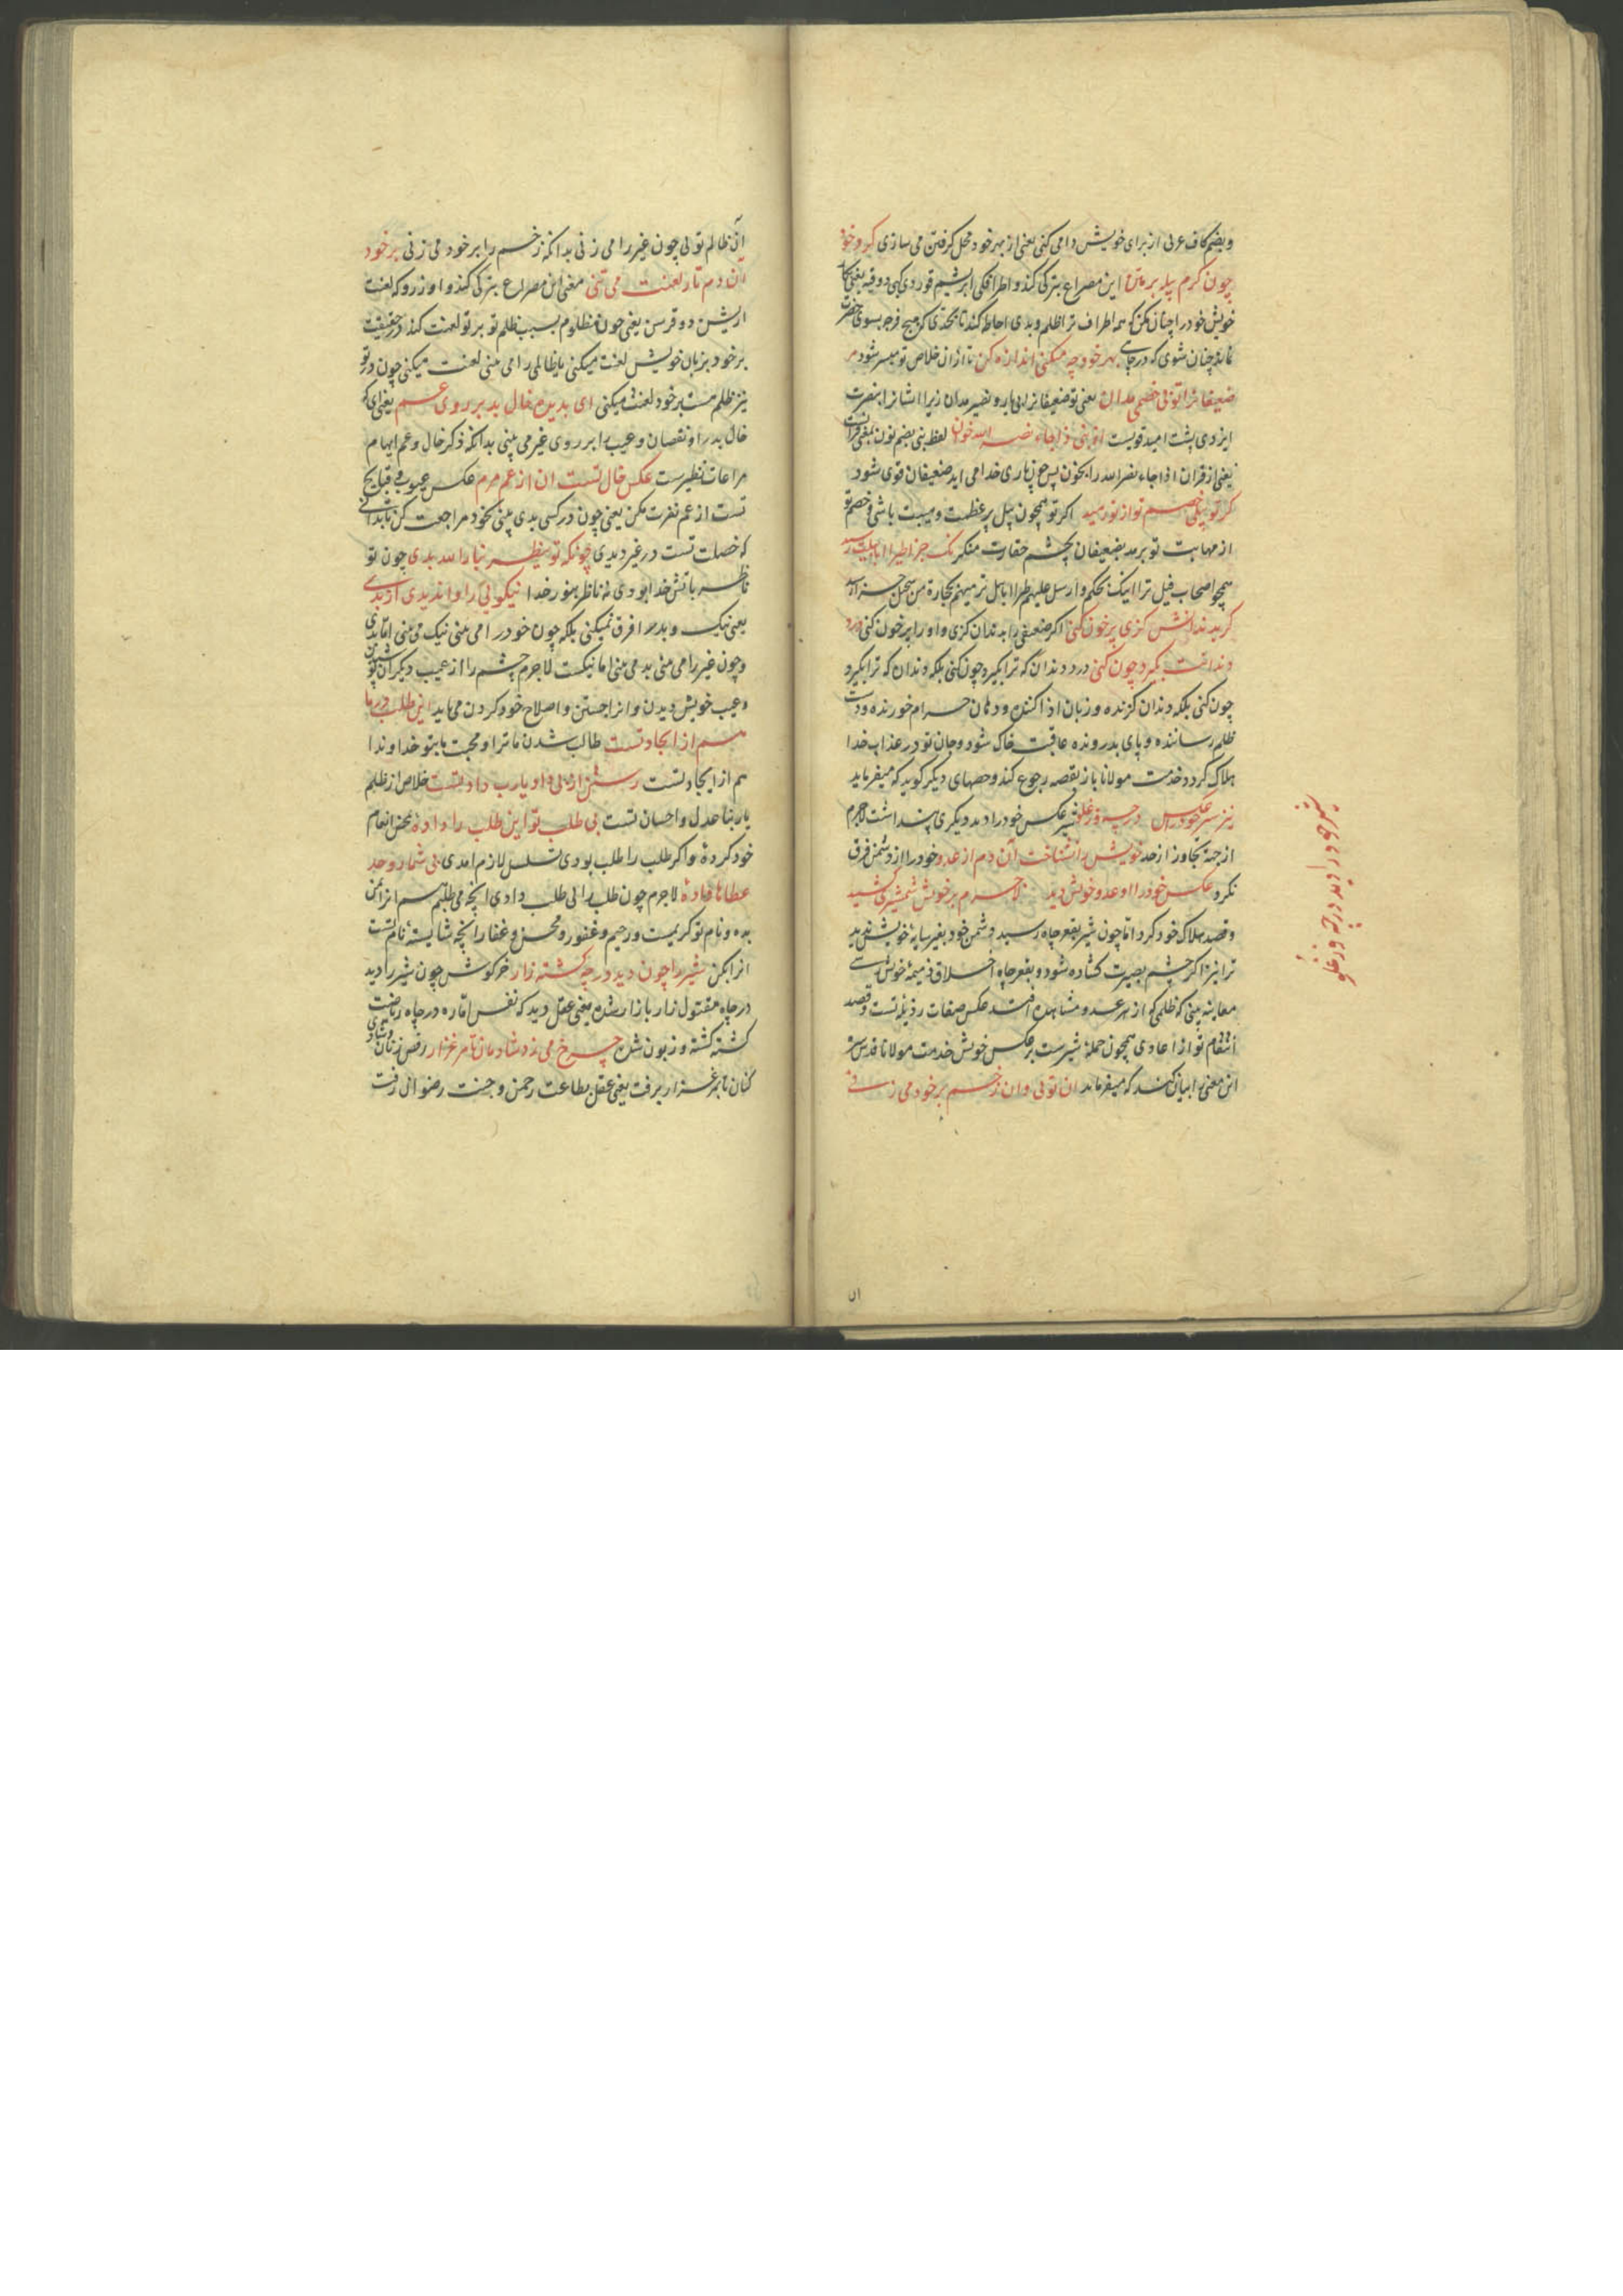 و بضم کاف عربی از برای خویش دامی کنی یعنی از بهر خود محل گرفتن می سازی کرد خود
چون کرم پیله بر متن این مصراع بترکی کندو اطرافکی ابریشم قوردی کبی دوقیه یعنی
خویش خود را چنان مکن که همه اطراف ترا ظلم و بدی احاطه کند تا بحدی که هیچ فرجه بسوی حضرت
نماند چنان شوی که در چاهی بهر خود چه میکنی اندازه کن تا از آن خلاص تو میسر شود مر
ضعیفانرا تو بی خصمی مدان یعنی تو ضعیفانرا بی یار و نصیر مدان زیرا ایشانرا بنصرت
ایزدی پشت امید قویست از نبی ذا جاء نصر الله خوان لفظ نبی بضم نون بمعنی قرآنست
یعنی از قرآن اذا جاء نصر الله را بخوان پس چون یاری خدا می اید ضعیفان قوی شود
کر تو پیلی خصم تو از تو رمید اکر تو همچون پیل پر عظمت و هیبت باشی و خصم تو
از مهابت تو برمد بضعیفان بچشم حقارت منکر نک جزا طیرا ابابیلت رسید
همچو اصحاب فیل ترا اینک بحکم و ارسل علیهم طیرا ابابیل ترمیهم بحجارة من سجیل جزا رسد
کر بدندانش کزی پر خون کنی اکر ضعیفی را بدندان کزی و او را پر خون کنی درد
دندانت بکیرد چون کنی درد دندان که ترا بکیرد چون کنی بلکه دندان که ترا بکیرد
چون کنی بلکه دندان کزنده و زبان اذا کننده و دهان حرام خورنده و دست
ظلم رساننده و پای بد رونده عاقبت خاک شود و جان تو در عذاب خدا
هلاک کردد خدمت مولانا باز بقصه رجوع کند و حصهای دیکر کوید که میفرماید
شیر عکس خود را دید دیکری پنداشت لاجرم
از جهة تجاوز از حد خویش را نشناخت آن دم از عدو خود را از دشمن فرق
نکرد عکس خود را او عدو خویش دید لاجرم بر خویش شمشیری کشید
و قصد هلاک خود کرد اما چون شیر بقعر چاه رسید دشمن خود بغیر سایه خویش ندید
ترا نیز اکر چشم بصیرت کشاده شود و بقعر چاه اخلاق ذمیمه خویش رسی
معاینه بینی که ظلمی که از هر عدو مشاهده افتد عکس صفات رذیله تست و قصد
انتقام تو از اعادی همچون حمله شیرست بر عکس خویش خدمت مولانا قدس سره
این معنی را بیان کند که میفرماید ان تویی وان زخم بر خود می زنی
شیر خود را دید در چه وز غلو
ان
آن ظالم تویی چون غیر را می زنی بدانکه زخم را بر خود می زنی بر خود
آن دم تار لعنت می تنی معنی این مصراع بترکی کندو اوزروکه لعنت
ارشین دوقرسن یعنی چون مظلوم بسبب ظلم تو بر تو لعنت کند در حقیقت
بر خود بزبان خویش لعنت میکنی یا ظالمی را می بینی لعنت میکنی چون در تو
نیز ظلم هست بر خود لعنت میکنی ای بدیده خال بد بر روی عم یعنی ای که
خال بد را و نقصان و عیب را بر روی غیر می بینی بدانکه ذکر خال و عم ایهام
مراعات نظیرست عکس خال تست ان از عم مرم عکس عیوب و قبایح
تست از عم نفرت مکن یعنی چون در کسی بدی بینی بخود مراجعت کن تا بدانی
که خصلت تست در غیر دیدی چونکه تو ینظر بنار الله بدی چون تو
ناظر باتش خدا بودی نه ناظر بنور خدا نیکوئی را وا ندیدی از بدی
یعنی نیک و بد را فرق نمیکنی بلکه چون خود را می بینی نیک می بینی اما بدی
و چون غیر را می بینی بد می بینی اما نیکست لاجرم چشم را از عیب دیکران پوشیدن
و عیب خویش دیدن و انرا جستن و اصلاح خود کردن می باید این طلب در ما
هم از ایجاد تست طالب شدن ما ترا و محبت ما بتو خداوندا
هم از ایجاد تست رستن از بی داد یارب داد تست خلاص از ظلم
یا ربنا عدل و احسان تست بی طلب تو این طلب را داده محض انعام
خود کرده و اکر طلب را طلب بودی تسلسل لازم امدی بی شمار و حد
عطاها داده لاجرم چون طلب را بی طلب دادی انچه می طلبم هم انرا بمن
بده و نام تو کریمست و رحیم و غفور و محسن و غفار انچه شایسته نام تست
انرا بکن شیر را چون دید در چه کشته زار خرکوش چون شیر را دید
در چاه مقتول زار بازار شده یعنی عقل دید که نفس اماره در چاه ریاضت
کشته کشته و زبون شده چرخ می زد شادمان تا مرغزار رقص زنان و شادی
کنان تا مرغزار برفت یعنی عقل بطاعت رحمن و جنت رضوانی رفت